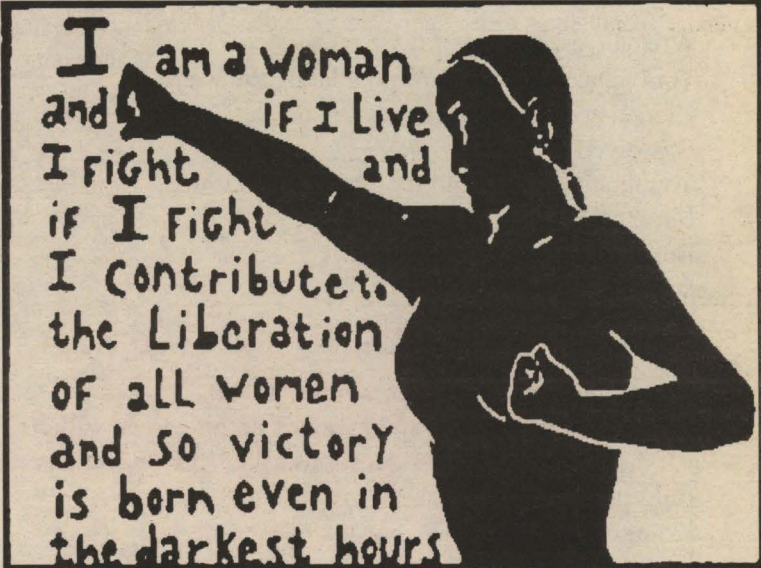 I am a woman
and if I live
I FiGht and
iF I FiGht
I contribute to
the Liberation
oF aLL women
and so victory
is born even in
the darkest hours